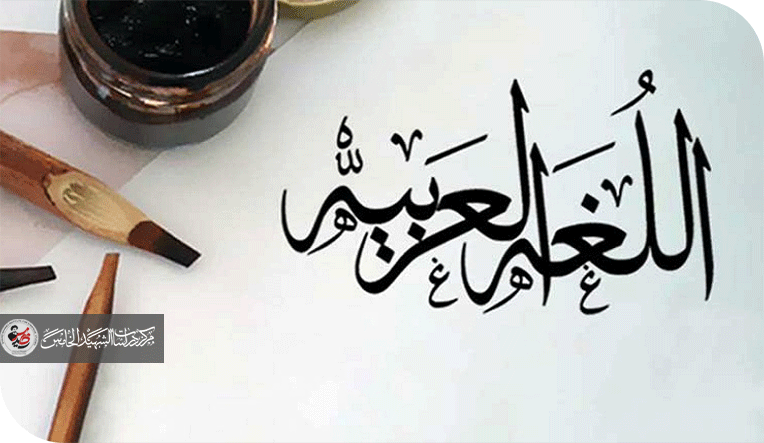 اللُغه العربيه
مركز دراسات الشهيد الخامس